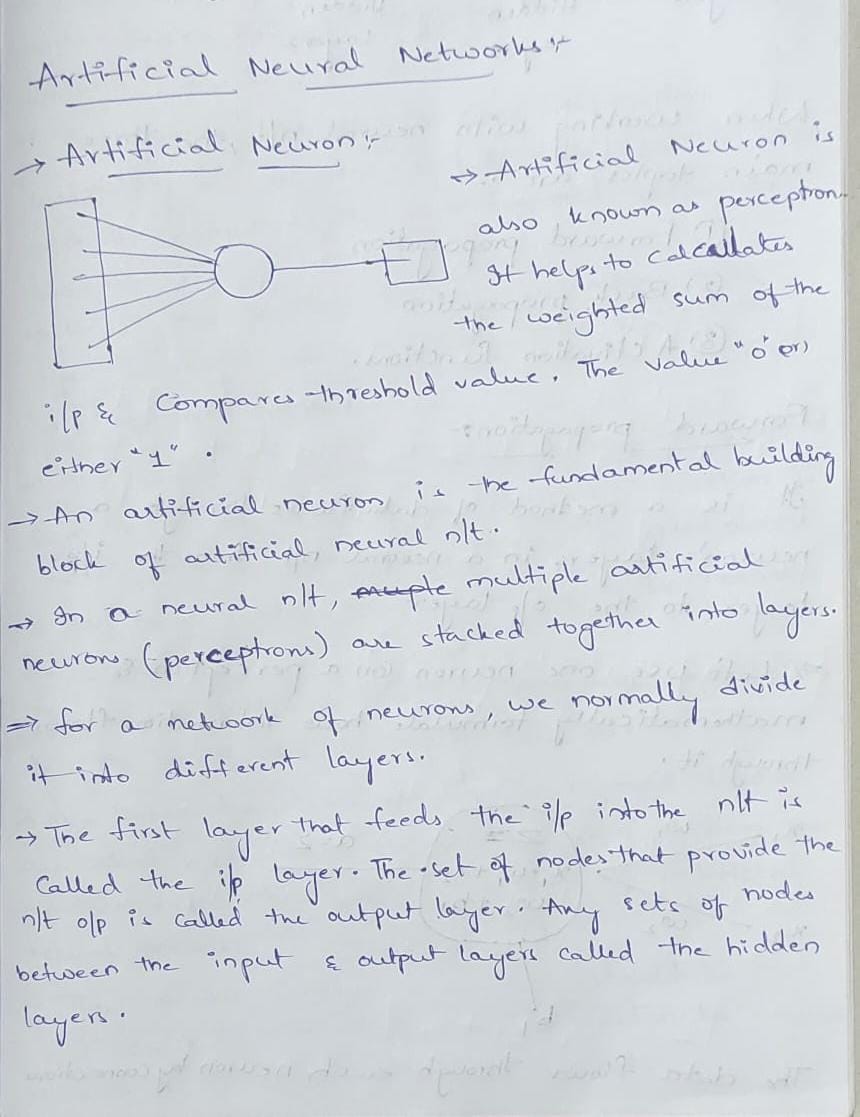 Artificial Neural Networks :-
→ Artificial Neuron :-
→ Artificial Neuron is
also known as perception.
It helps to calcallates
the weighted sum of the
i/p & Compares threshold value. The value "0" or)
either "1" .
→ An artificial neuron is the fundamental building
block of artificial neural n/t.
→ In a neural n/t, multiple artificial
neurons (perceptrons) are stacked together into layers.
⇒ for a network of neurons, we normally divide
it into different layers.
→ The first layer that feeds the i/p into the n/t is
Called the i/p layer. The set of nodes that provide the
n/t o/p is called the output layer. Any sets of nodes
between the input & output layers called the hidden
layers.